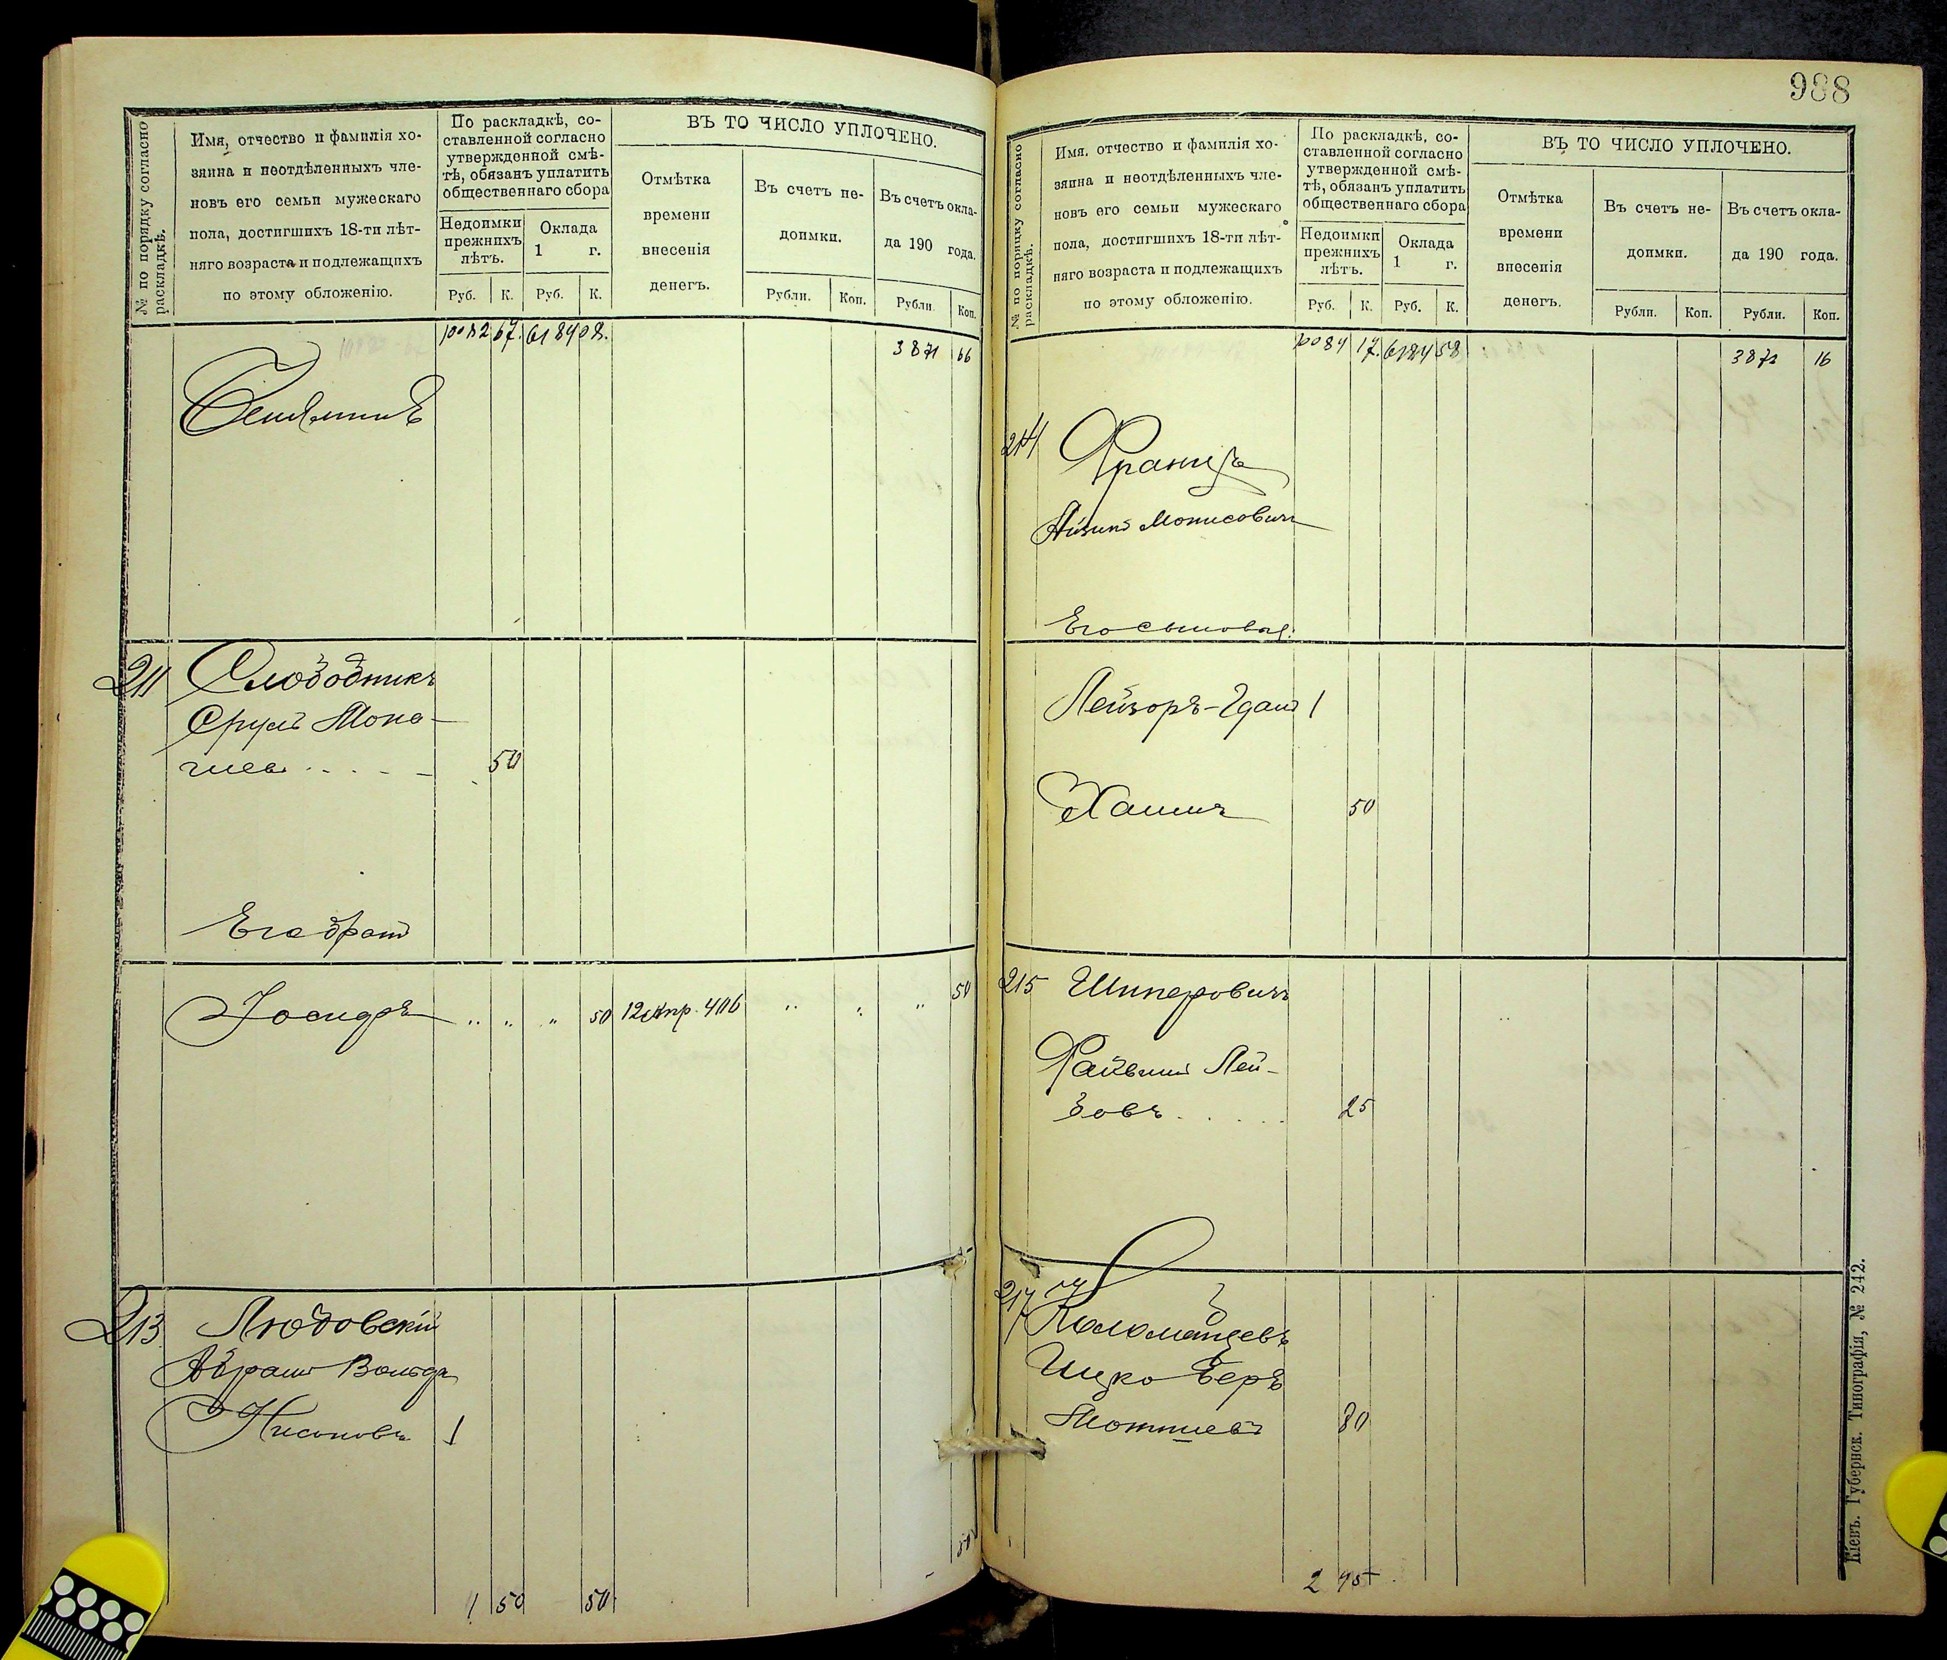 № по порядку согласно раскладкѣ.
Имя, отчество и фамилія хо-
зяина и неотдѣленныхъ чле-
новъ его семьи мужескаго
пола, достигшихъ 18-ти лѣт-
няго возраста и подлежащихъ
по этому обложенію.
По раскладкѣ, со-
ставленной согласно
утвержденной смѣ-
тѣ, обязанъ уплатить
общественнаго сбора
Недоимки
прежнихъ
лѣтъ.
Оклада
1 г.
Руб. К. Руб. К.
ВЪ ТО ЧИСЛО УПЛОЧЕНО.
Отмѣтка
времени
внесенія
денегъ.
Въ счетъ не-
доимки.
Рубли. Коп.
Въ счетъ окла-
да 190 года.
Рубли. Коп.
10082 67. 6184 08. 3871 66
Беніаминъ
211 Слободникъ
Сруль Мона-
шев . . . - 50
Его братъ
Іосифъ " " " 50 12 Апр. 406 " " " 50
213 Любовскій
Абрамъ Вольфъ
Нисоновъ 1
50
1 50 50
988
№ по порядку согласно раскладкѣ.
Имя, отчество и фамилія хо-
зяина и неотдѣленныхъ чле-
новъ его семьи мужескаго
пола, достигшихъ 18-ти лѣт-
няго возраста и подлежащихъ
по этому обложенію.
По раскладкѣ, со-
ставленной согласно
утвержденной смѣ-
тѣ, обязанъ уплатить
общественнаго сбора
Недоимки
прежнихъ
лѣтъ.
Оклада
1 г.
Руб. К. Руб. К.
ВЪ ТО ЧИСЛО УПЛОЧЕНО.
Отмѣтка
времени
внесенія
денегъ.
Въ счетъ не-
доимки.
Рубли. Коп.
Въ счетъ окла-
да 190 года.
Рубли. Коп.
10084 17. 6184 58 3872 16
214 Францъ
Айзикъ Монисовичъ
Его сыновья:
Лейзоръ-Іданъ 1
Хаимъ 50
215 Шнперовичъ
Файвишъ Лей-
зовъ . . . . 25
217 Коломайцевъ
Ицко Беръ
Мотшевъ 80
2 45
Кіевъ. Губернск. Типографія, № 242.